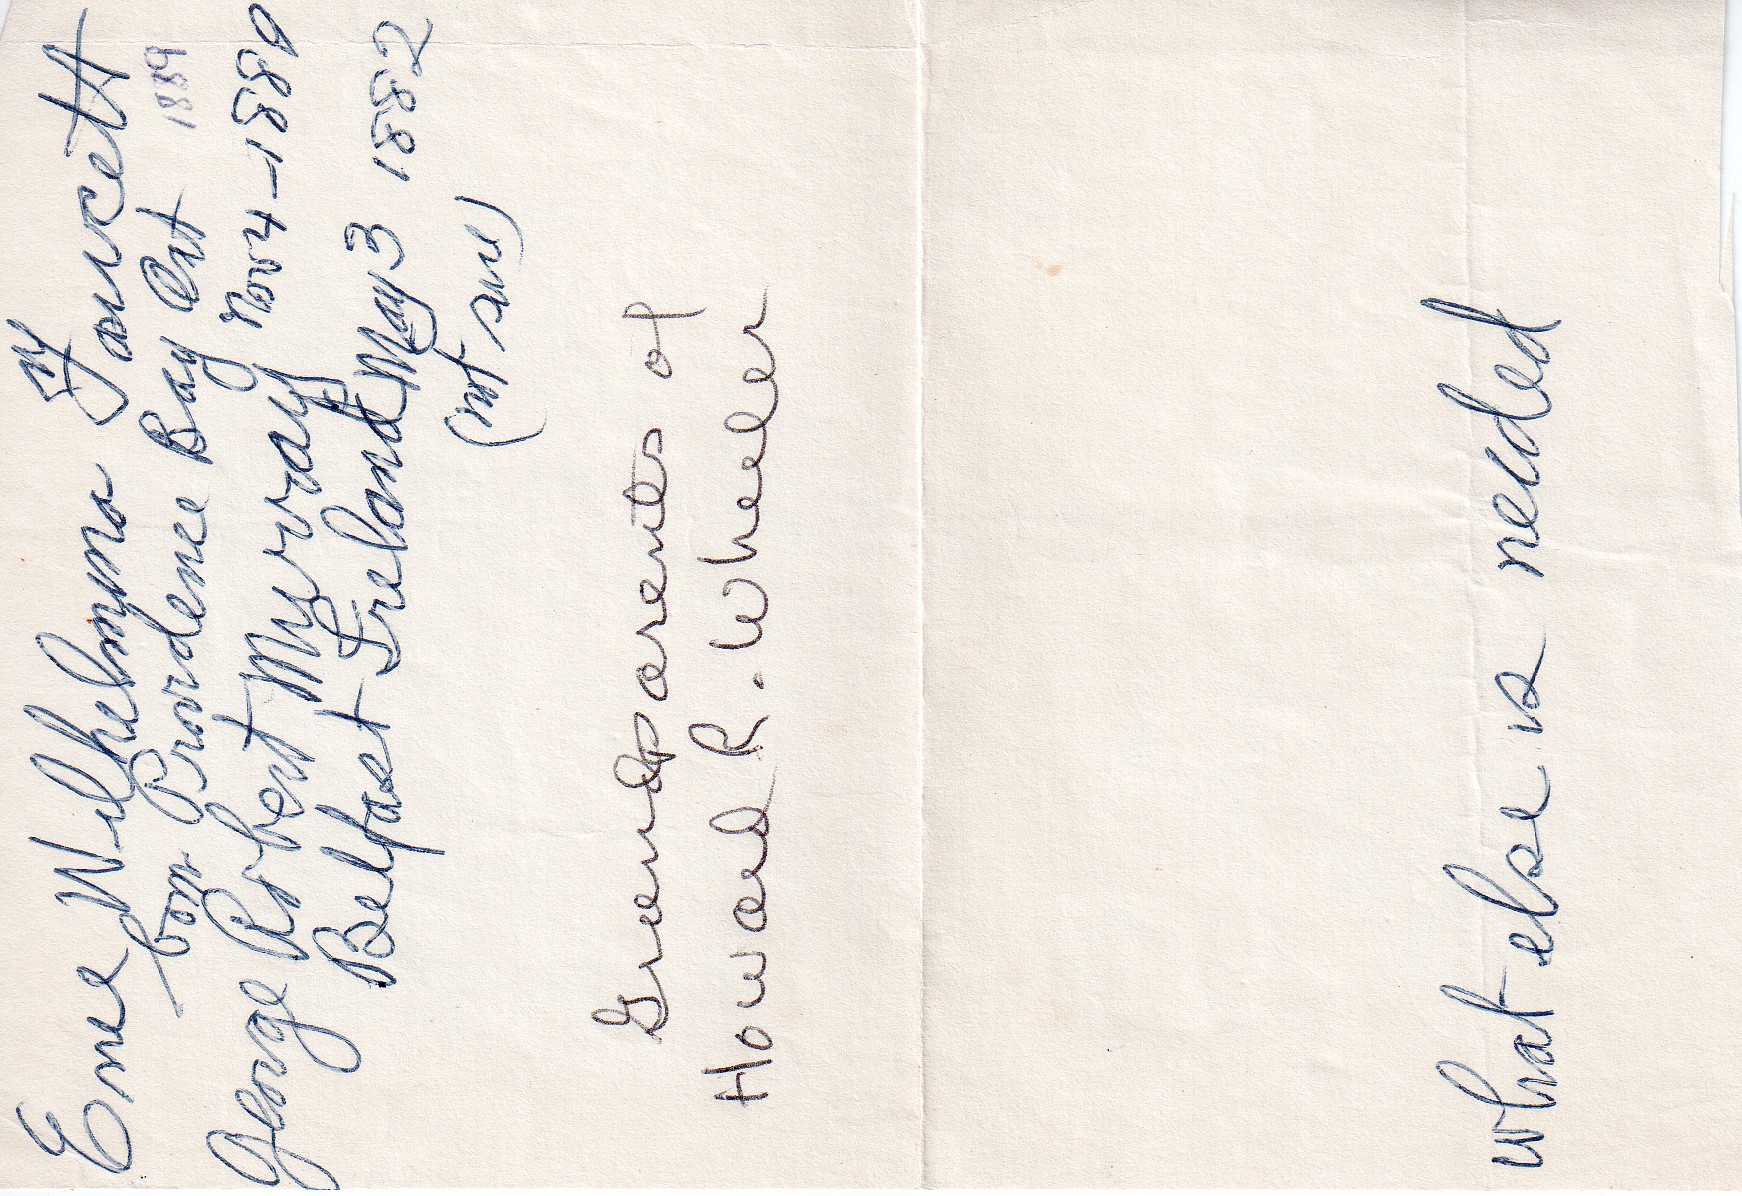 Wilhelmina Fawcett
born Providence Bay Ont 1889
Nov 4-1889
George Robert Murray
Belfast Ireland May 3 1882
(not sure)
Grandparents of
Howard R. Wheeler
what else is needed